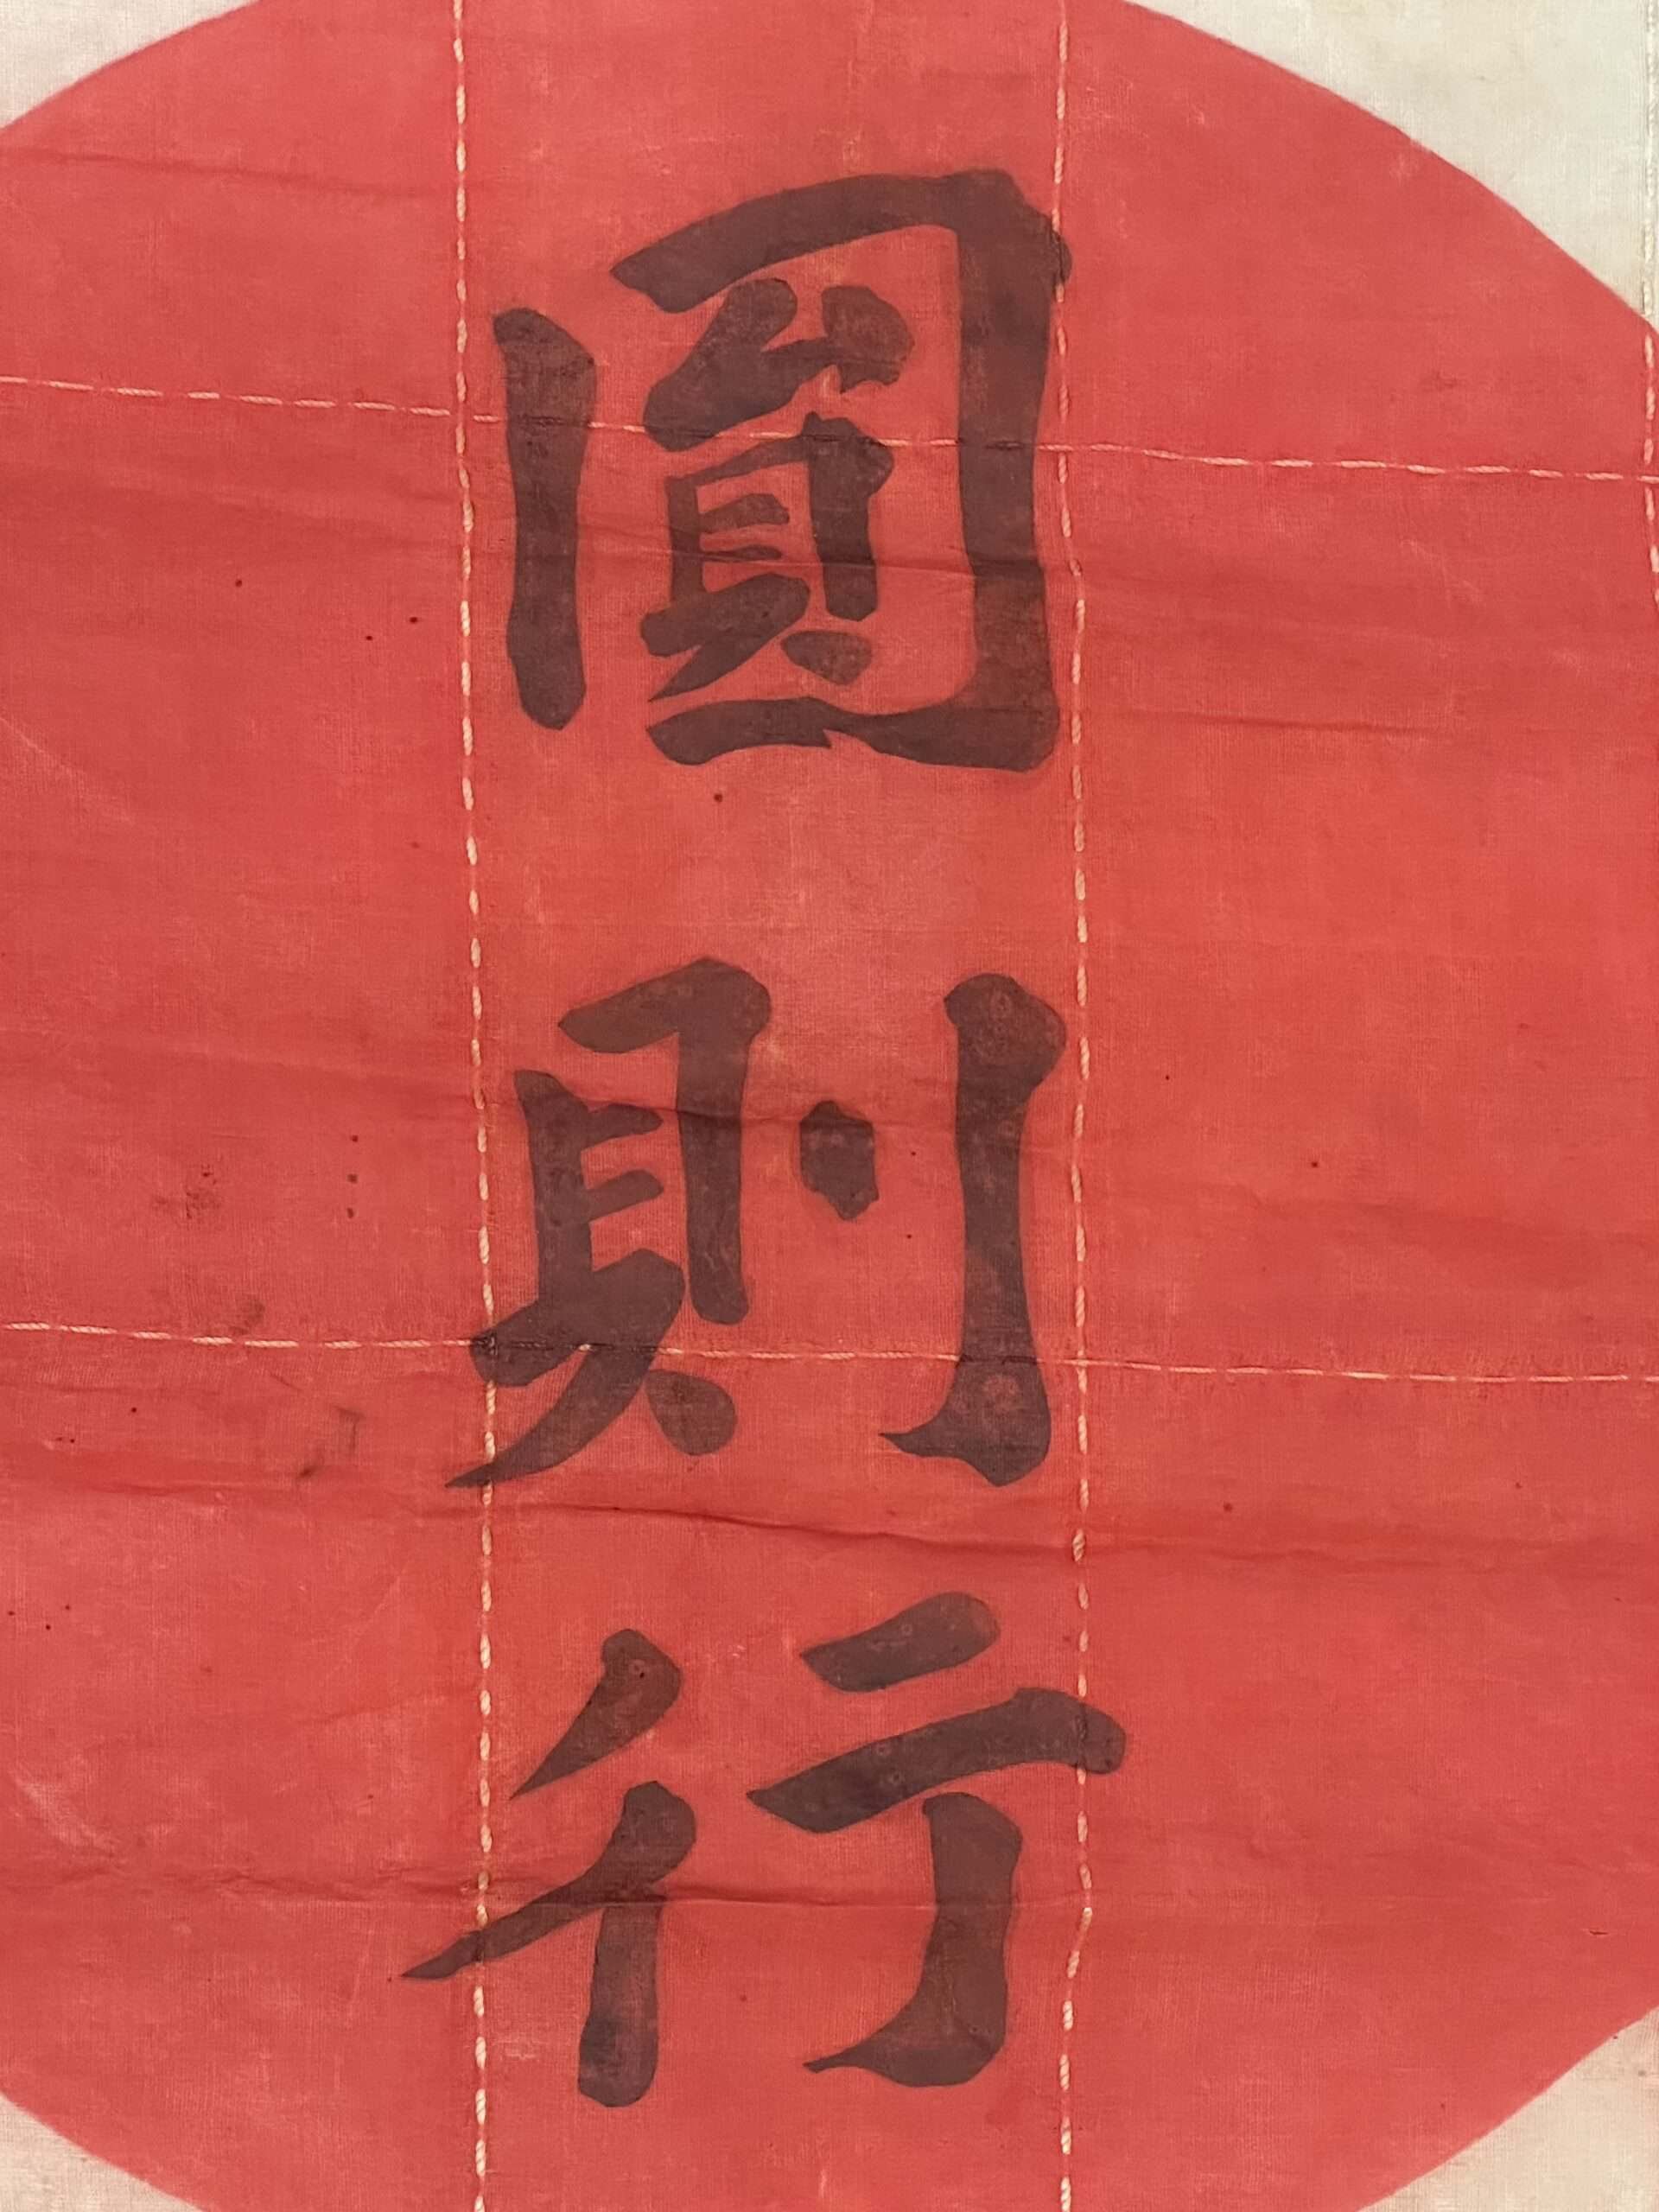 圓則行